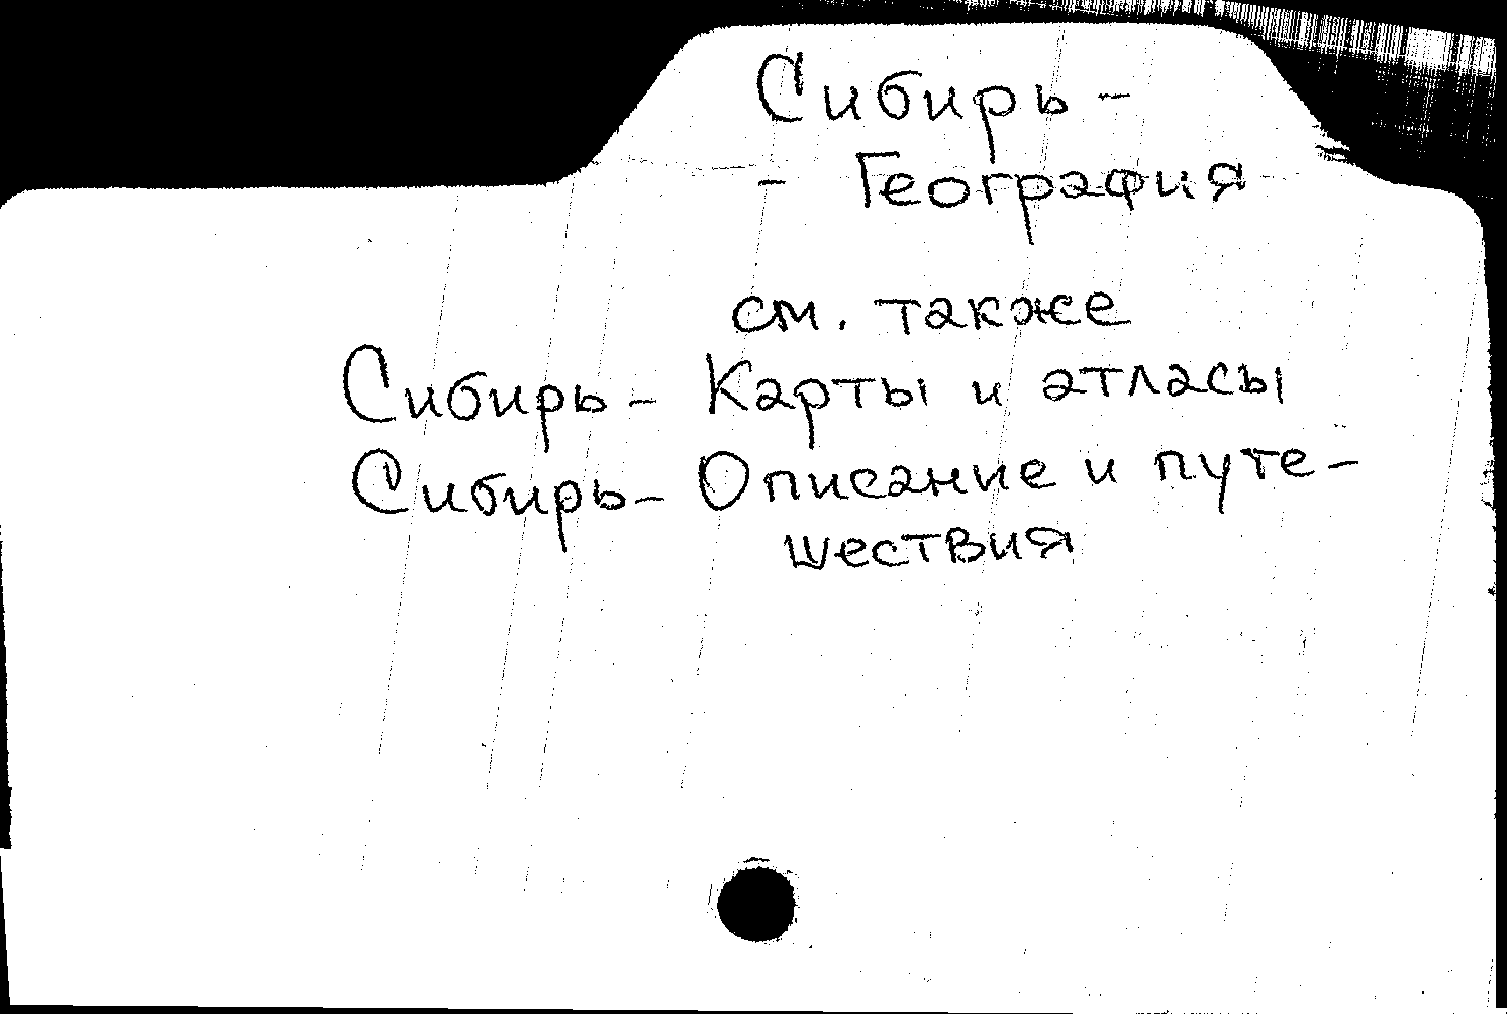 Сибирь -
- География
см. также
Сибирь - Карты и атласы
Сибирь - Описание и путе-
шествия